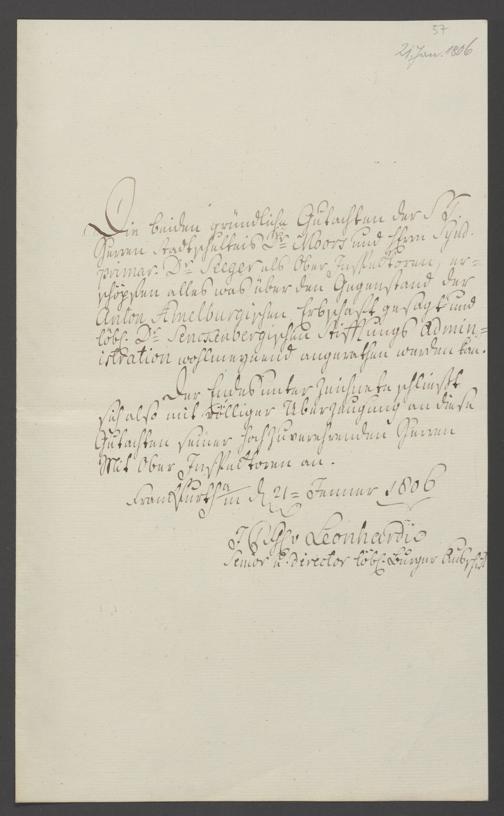 57
21. Jan. 1806
Die beiden gründliche Gutachten der
Herren Stadtschultheis Dr. Moors und Herrn Synd.
primar. Dr. Seeger als Ober Inspectoren, er-
schöpfen alles was über den Gegenstand der
Anton Amelburgischen Erbschaft gesagt und
löbl. Dr. Senckenbergischen Stifftungs Admin-
istration wohlmeynend angerathen werden kan.
Der Endes unterzeichnete schliesst
sich also mit völliger Überzeugung an diese
Gutachten seiner hochzuverehrenden Herren
Mit Ober Inspectoren an.
Franckfurth a/m d. 21= Jenner 1806
Leonhardi
Senior u. Director löbl. Burger Ausch.